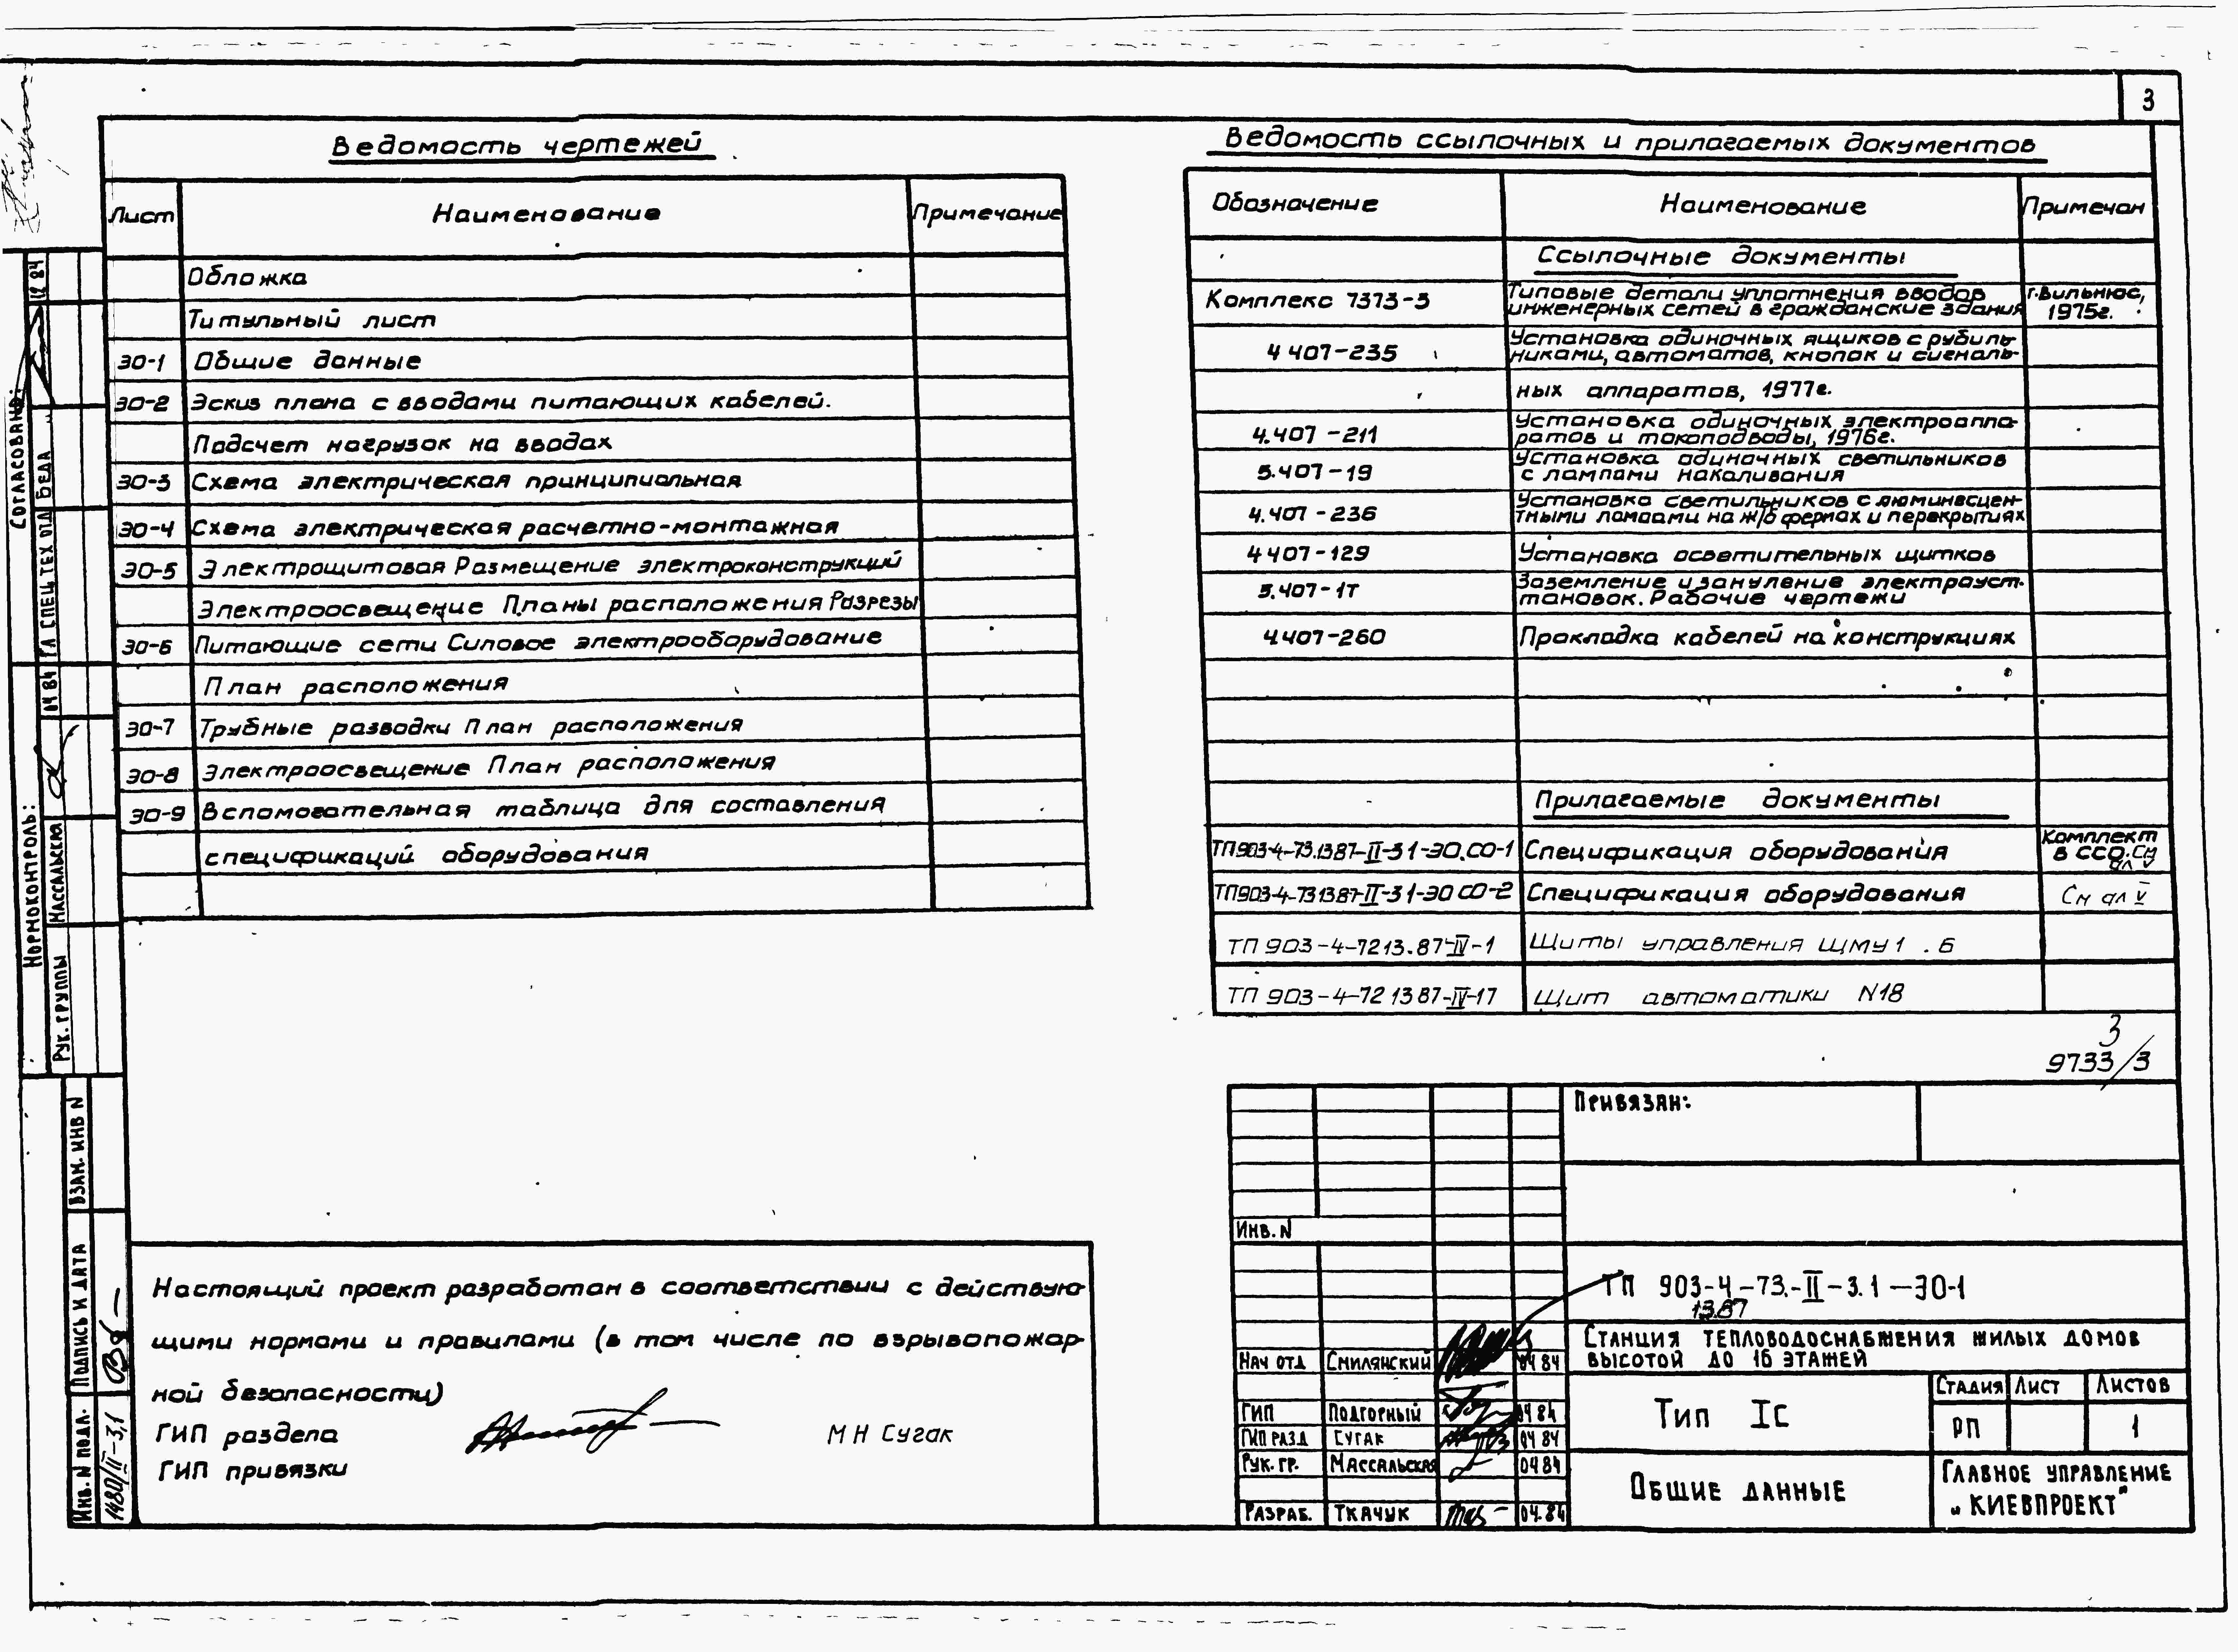 3
Ведомость чертежей
Лист Наименование Примечание
Обложка
Титульный лист
ЭО-1 Общие данные
ЭО-2 Эскиз плана с вводами питающих кабелей.
Подсчет нагрузок на вводах
ЭО-3 Схема электрическая принципиальная
ЭО-4 Схема электрическая расчетно-монтажная
ЭО-5 Электрощитовая Размещение электроконструкций
Электроосвещение Планы расположения Разрезы
ЭО-6 Питающие сети Силовое электрооборудование
План расположения
ЭО-7 Трубные разводки План расположения
ЭО-8 Электроосвещение План расположения
ЭО-9 Вспомогательная таблица для составления
спецификаций оборудования
Ведомость ссылочных и прилагаемых документов
Обозначение Наименование Примечан
Ссылочные документы
Комплекс 7373-3 Типовые детали уплотнения вводов г.Вильнюс,
инженерных сетей в гражданские здания 1975г.
4 407-235 Установка одиночных ящиков с рубиль-
никами, автоматов, кнопок и сигналь-
ных аппаратов, 1977г.
4.407-211 Установка одиночных электроаппа-
ратов и токоподводы, 1976г.
5.407-19 Установка одиночных светильников
с лампами накаливания
4.407-236 Установка светильников с люминесцен-
тными лампами на ж/б фермах и перекрытиях
4 407-129 Установка осветительных щитков
5.407-1т Заземление и зануление электроуст-
тановок. Рабочие чертежи
4.407-260 Прокладка кабелей на конструкциях
Прилагаемые документы
ТП903-4-73.1387-II-31-ЭО.СО-1 Спецификация оборудования Комплект
в ССО. См
ал V
ТП903-4-731387-II-31-ЭО СО-2 Спецификация оборудования См ал V
ТП 903-4-7213.87-IV-1 Щиты управления ЩМУ1 . 6
ТП 903-4-72 13 87-IV-17 Щит автоматики N18
3
9733/3
Настоящий проект разработан в соответствии с действую-
щими нормами и правилами (в том числе по взрывопожар-
ной безопасности)
ГИП раздела М Н Сугак
ГИП привязки
Привязан:
Инв. N
ТП 903-4-73.-II-3.1-ЭО-1
13.87
Станция тепловодоснабжения жилых домов
высотой до 16 этажей
Нач отд Смилянский 04 84
ГИП Подгорный 04 84
ГИП разд Сугак 04 84
Рук. гр. Массальская 04 84
Разраб. Ткачук 04.84
Тип Iс
Стадия Лист Листов
РП 1
Общие данные
Главное управление
„Киевпроект"
Согласовано:
Гл спец тех отд Беда 12 84
Нормоконтроль:
Рук. группы Массальская 04 84
Взам. инв N
Подпись и дата
Инв. N подл. 1480/II-3,1